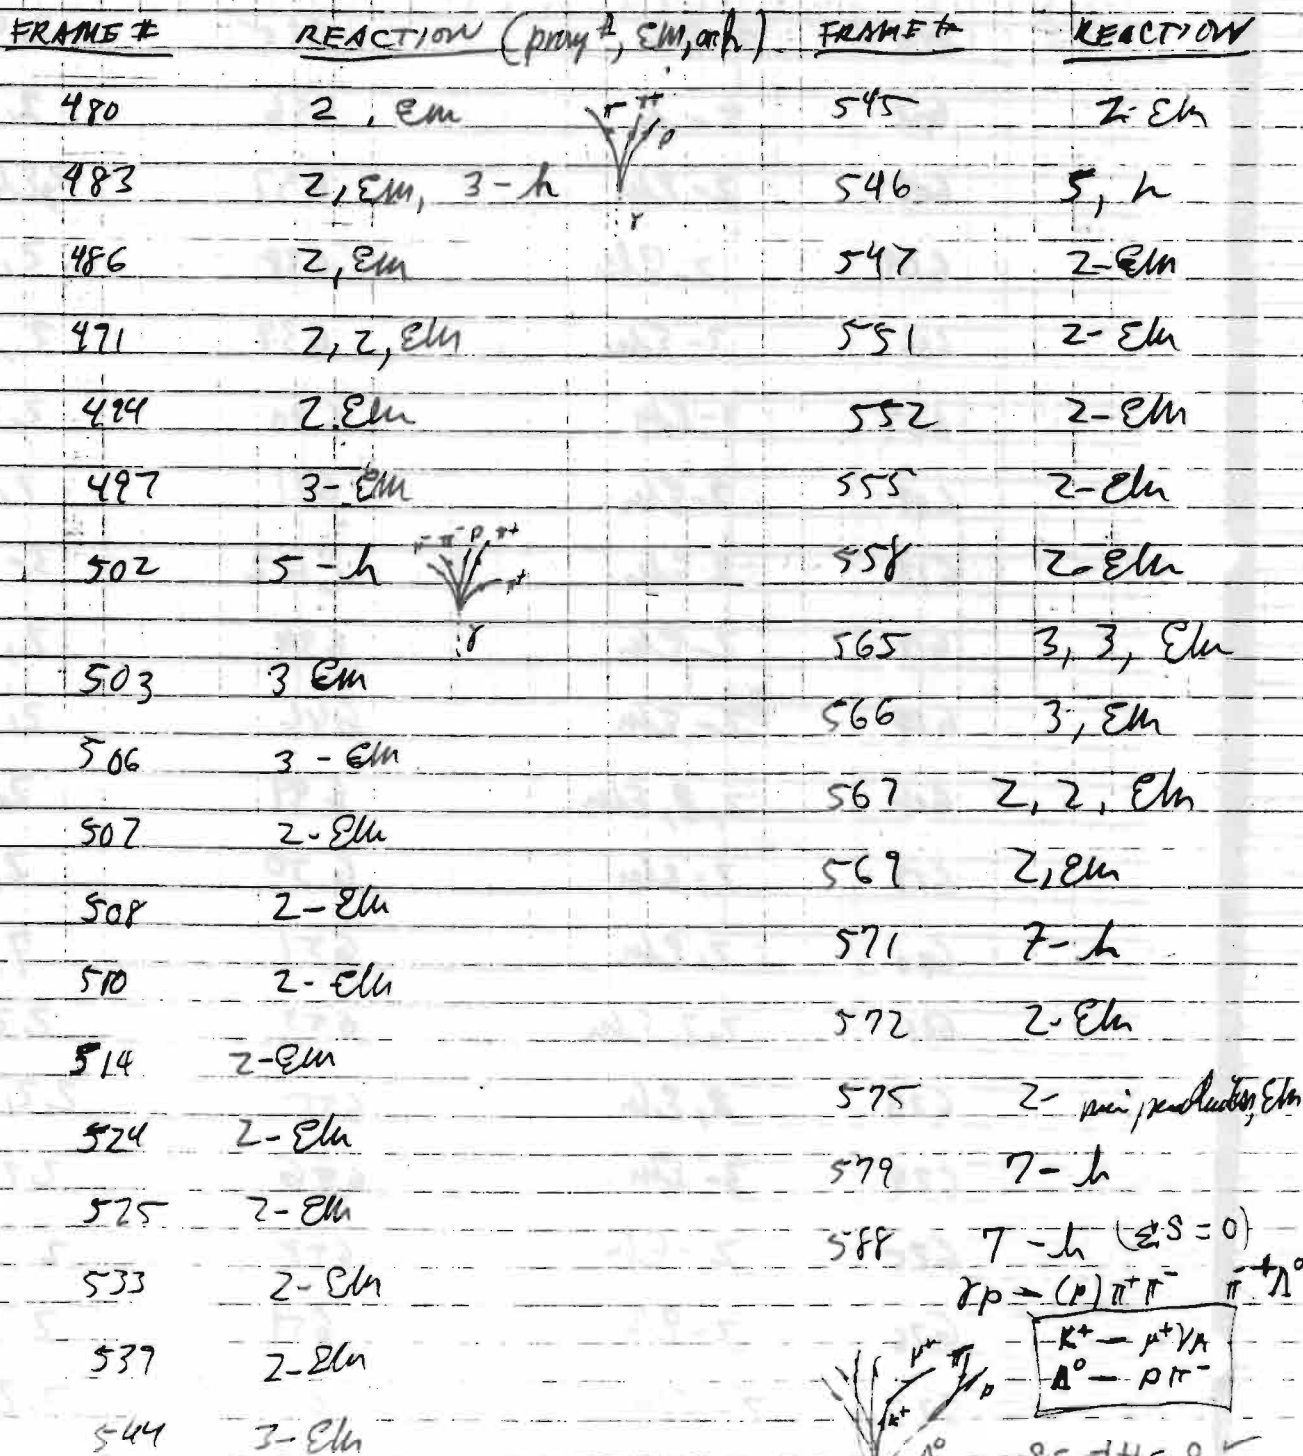 FRAME # REACTION (prong #, Em, or h)
480 2, Em
π π p
γ
483 2, Em, 3-h
486 2, Em
491 2, 2, Em
494 2 Em
497 3-Em
502 5-h
π- π- p π+ π+
γ
503 3 Em
506 3-Em
507 2-Em
508 2-Em
510 2-Em
514 2-Em
524 2-Em
525 2-Em
533 2-Em
539 2-Em
544 3-Em
FRAME # REACTION
545 2-Em
546 5, h
547 2-Em
551 2-Em
552 2-Em
555 2-Em
558 2-Em
565 3, 3, Em
566 3, Em
567 2, 2, Em
569 2, Em
571 7-h
572 2-Em
575 2- pair production, Em
579 7-h
588 7-h (ΣS=0)
γp → (p) π+ π-
K+ — μ+
Λ0 — pπ-
μ+ π p
K+
Λ0